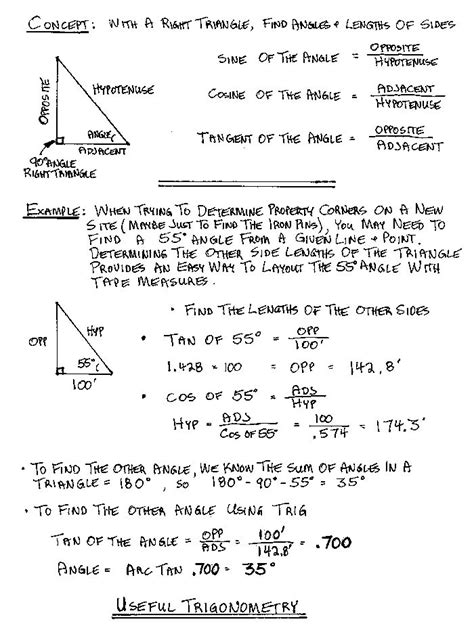 CONCEPT: WITH A RIGHT TRIANGLE, FIND ANGLES & LENGTHS OF SIDES
SINE OF THE ANGLE = OPPOSITE / HYPOTENUSE
OPPOSITE
HYPOTENUSE
COSINE OF THE ANGLE = ADJACENT / HYPOTENUSE
ANGLE
ADJACENT
TANGENT OF THE ANGLE = OPPOSITE / ADJACENT
90° ANGLE
RIGHT TRIANGLE
EXAMPLE: WHEN TRYING TO DETERMINE PROPERTY CORNERS ON A NEW
SITE (MAYBE JUST TO FIND THE IRON PINS), YOU MAY NEED TO
FIND A 55° ANGLE FROM A GIVEN LINE & POINT.
DETERMINING THE OTHER SIDE LENGTHS OF THE TRIANGLE
PROVIDES AN EASY WAY TO LAYOUT THE 55° ANGLE WITH
TAPE MEASURES.
• FIND THE LENGTHS OF THE OTHER SIDES
OPP
HYP
55°
100'
• TAN OF 55° = OPP / 100'
1.428 × 100 = OPP = 142.8'
• COS OF 55° = ADJ / HYP
HYP = ADJ / COS OF 55° = 100 / .574 = 174.3'
• TO FIND THE OTHER ANGLE, WE KNOW THE SUM OF ANGLES IN A
TRIANGLE = 180°, SO 180° - 90° - 55° = 35°
• TO FIND THE OTHER ANGLE USING TRIG
TAN OF THE ANGLE = OPP / ADJ = 100' / 142.8' = .700
ANGLE = ARC TAN .700 = 35°
USEFUL TRIGONOMETRY